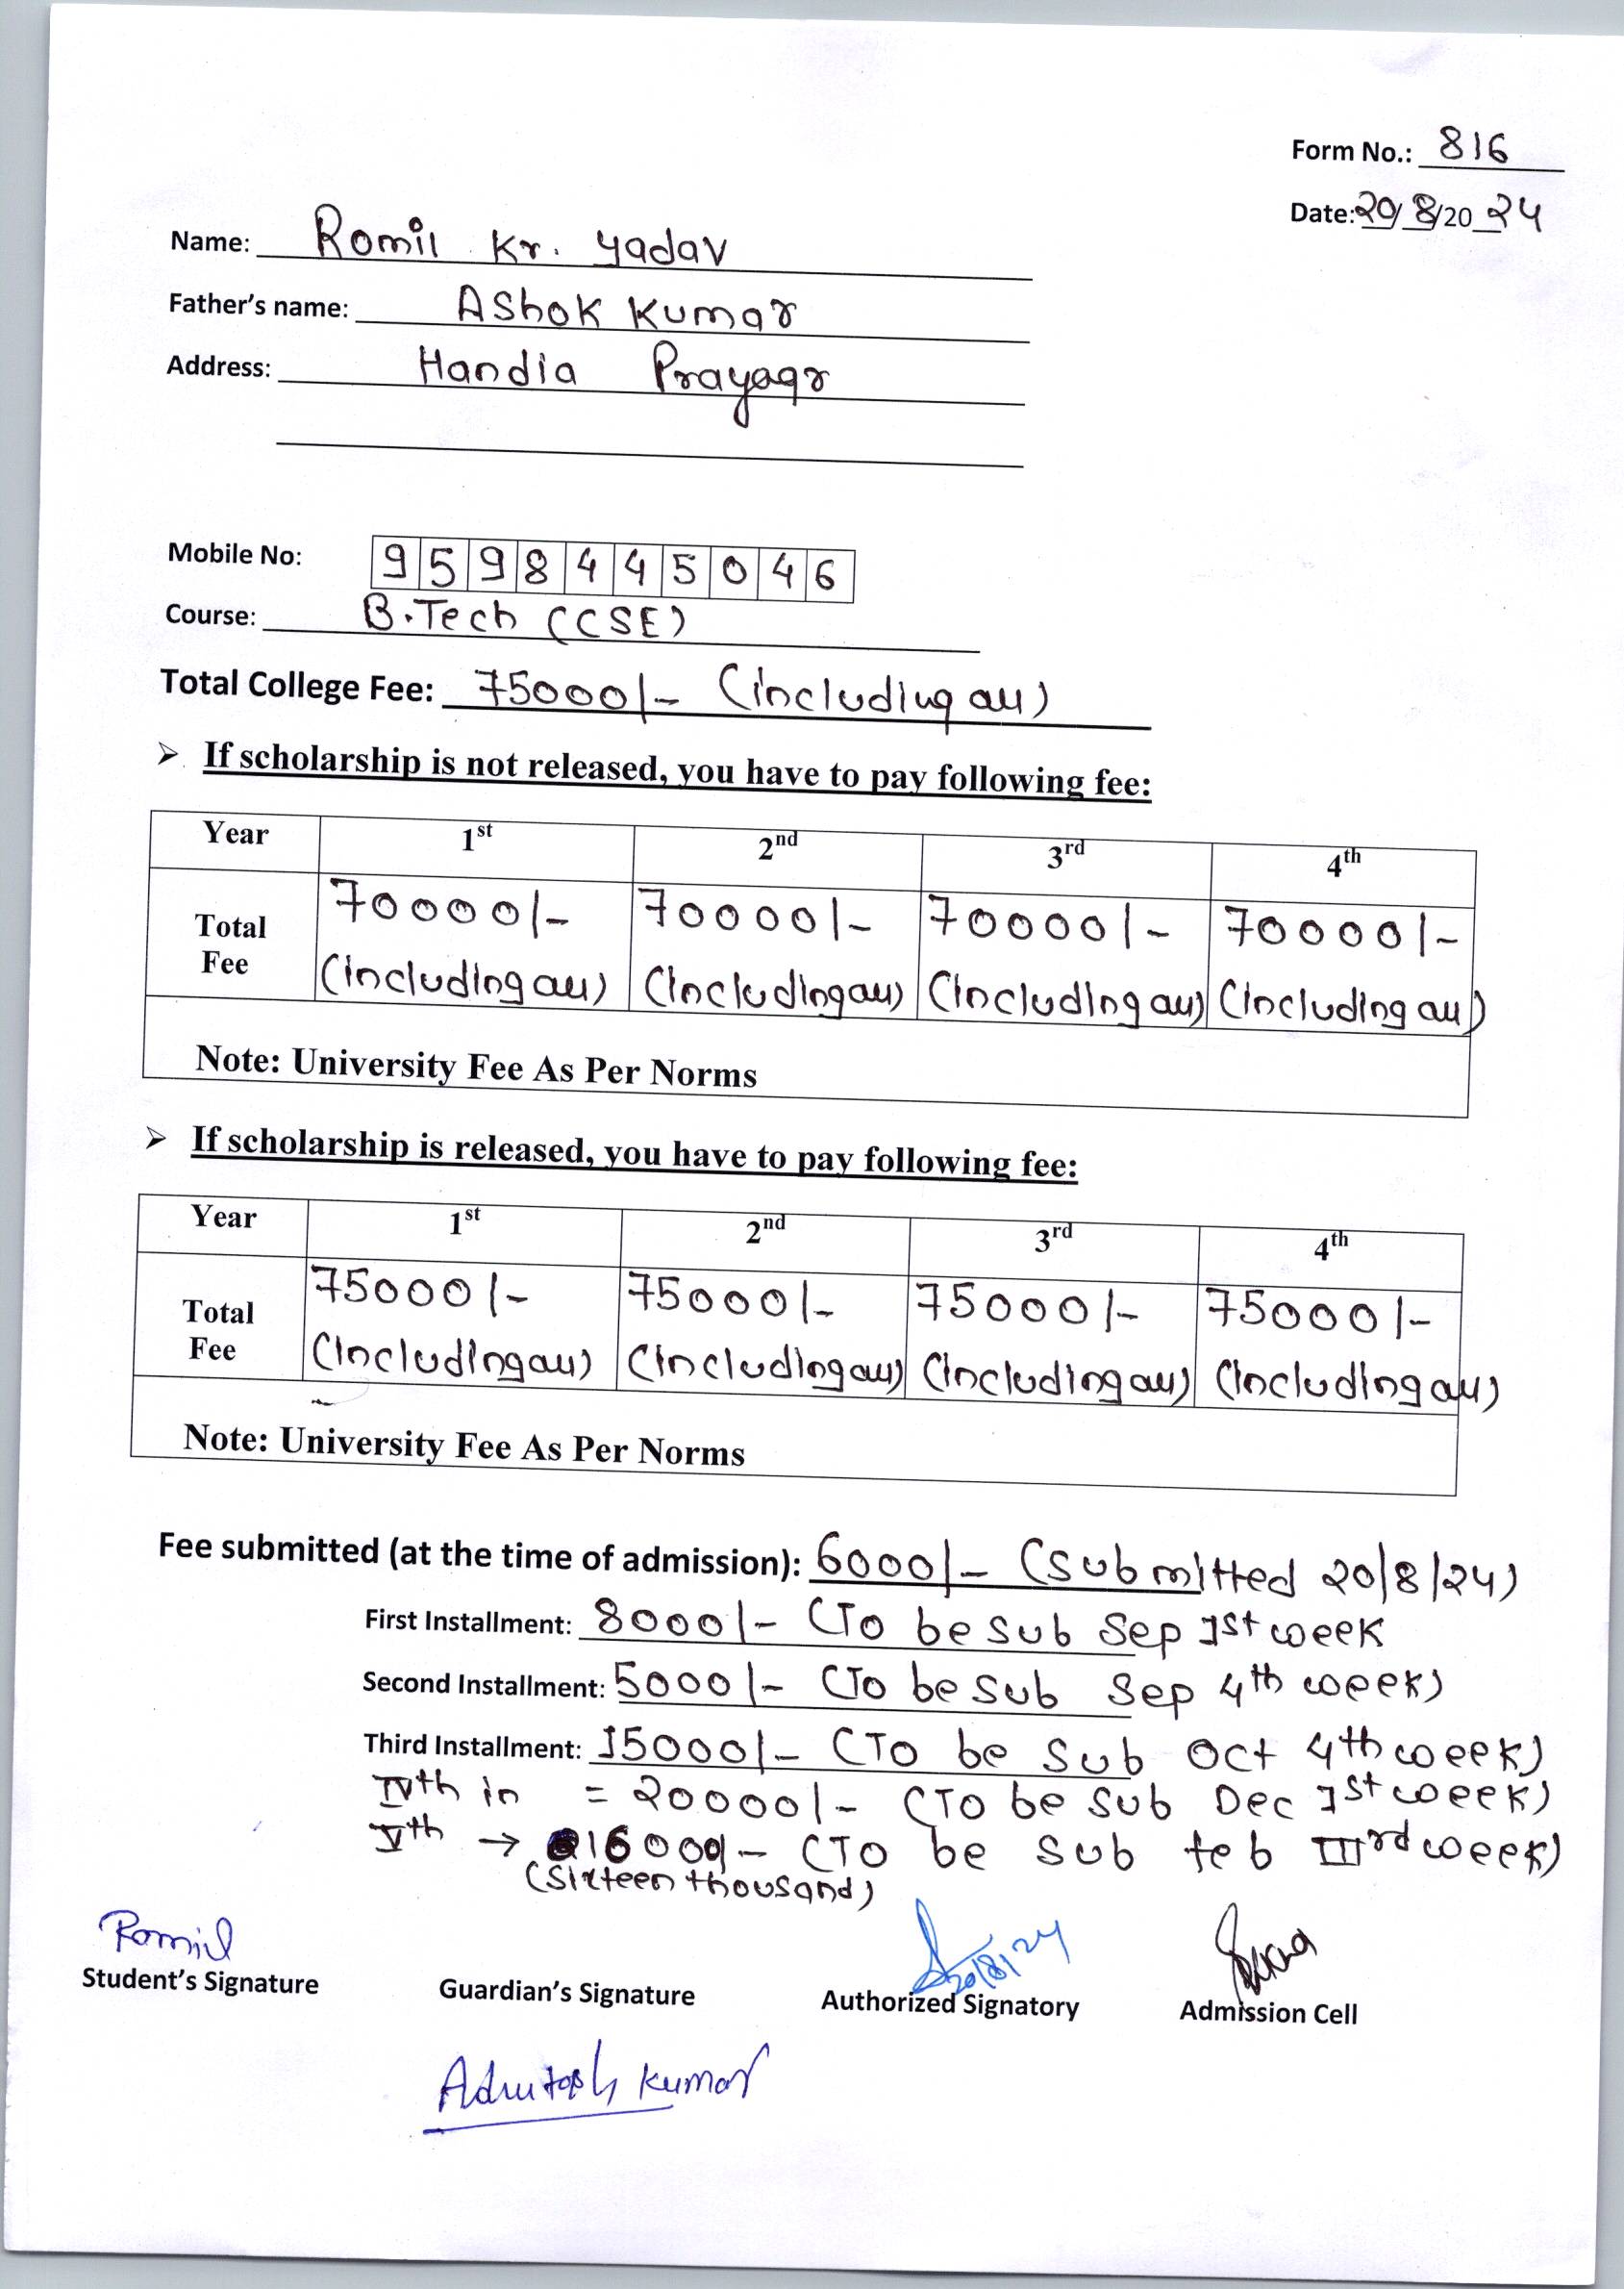 Form No.: 816
Date: 20/8/2024
Name: Romil Kr. Yadav
Father's name: Ashok Kumar
Address: Handia Prayagr
Mobile No: 9598445046
Course: B.Tech (CSE)
Total College Fee: 75000/- (including all)
➤ If scholarship is not released, you have to pay following fee:
Year 1st 2nd 3rd 4th
Total Fee 70000/- 70000/- 70000/- 70000/-
(including all) (including all) (including all) (including all)
Note: University Fee As Per Norms
➤ If scholarship is released, you have to pay following fee:
Year 1st 2nd 3rd 4th
Total Fee 75000/- 75000/- 75000/- 75000/-
(including all) (including all) (including all) (including all)
Note: University Fee As Per Norms
Fee submitted (at the time of admission): 6000/- (submitted 20/8/24)
First Installment: 8000/- (To be sub Sep 1st week
Second Installment: 5000/- (To be sub Sep 4th week)
Third Installment: 15000/- (To be sub Oct 4th week)
IVth in = 20000/- (To be sub Dec 1st week)
Vth → 16000/- (To be sub feb IIIrd week)
(Sixteen thousand)
Romil 20/8/24
Student's Signature Guardian's Signature Authorized Signatory Admission Cell
Kumar